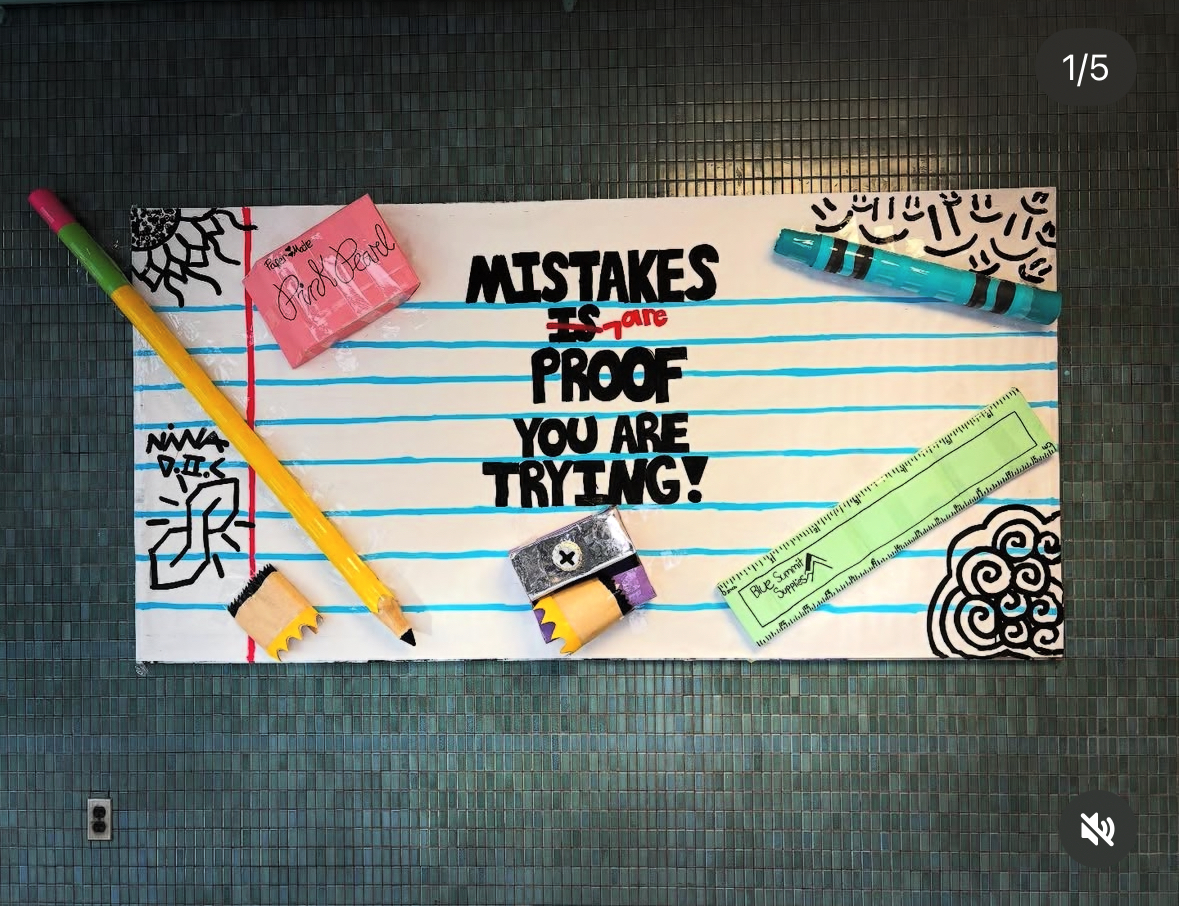 1/5
Paper Mate
Pink Pearl
MISTAKES
IS are
PROOF
YOU ARE
TRYING!
NiNA
D.II.C
Blue Summit
Supplies